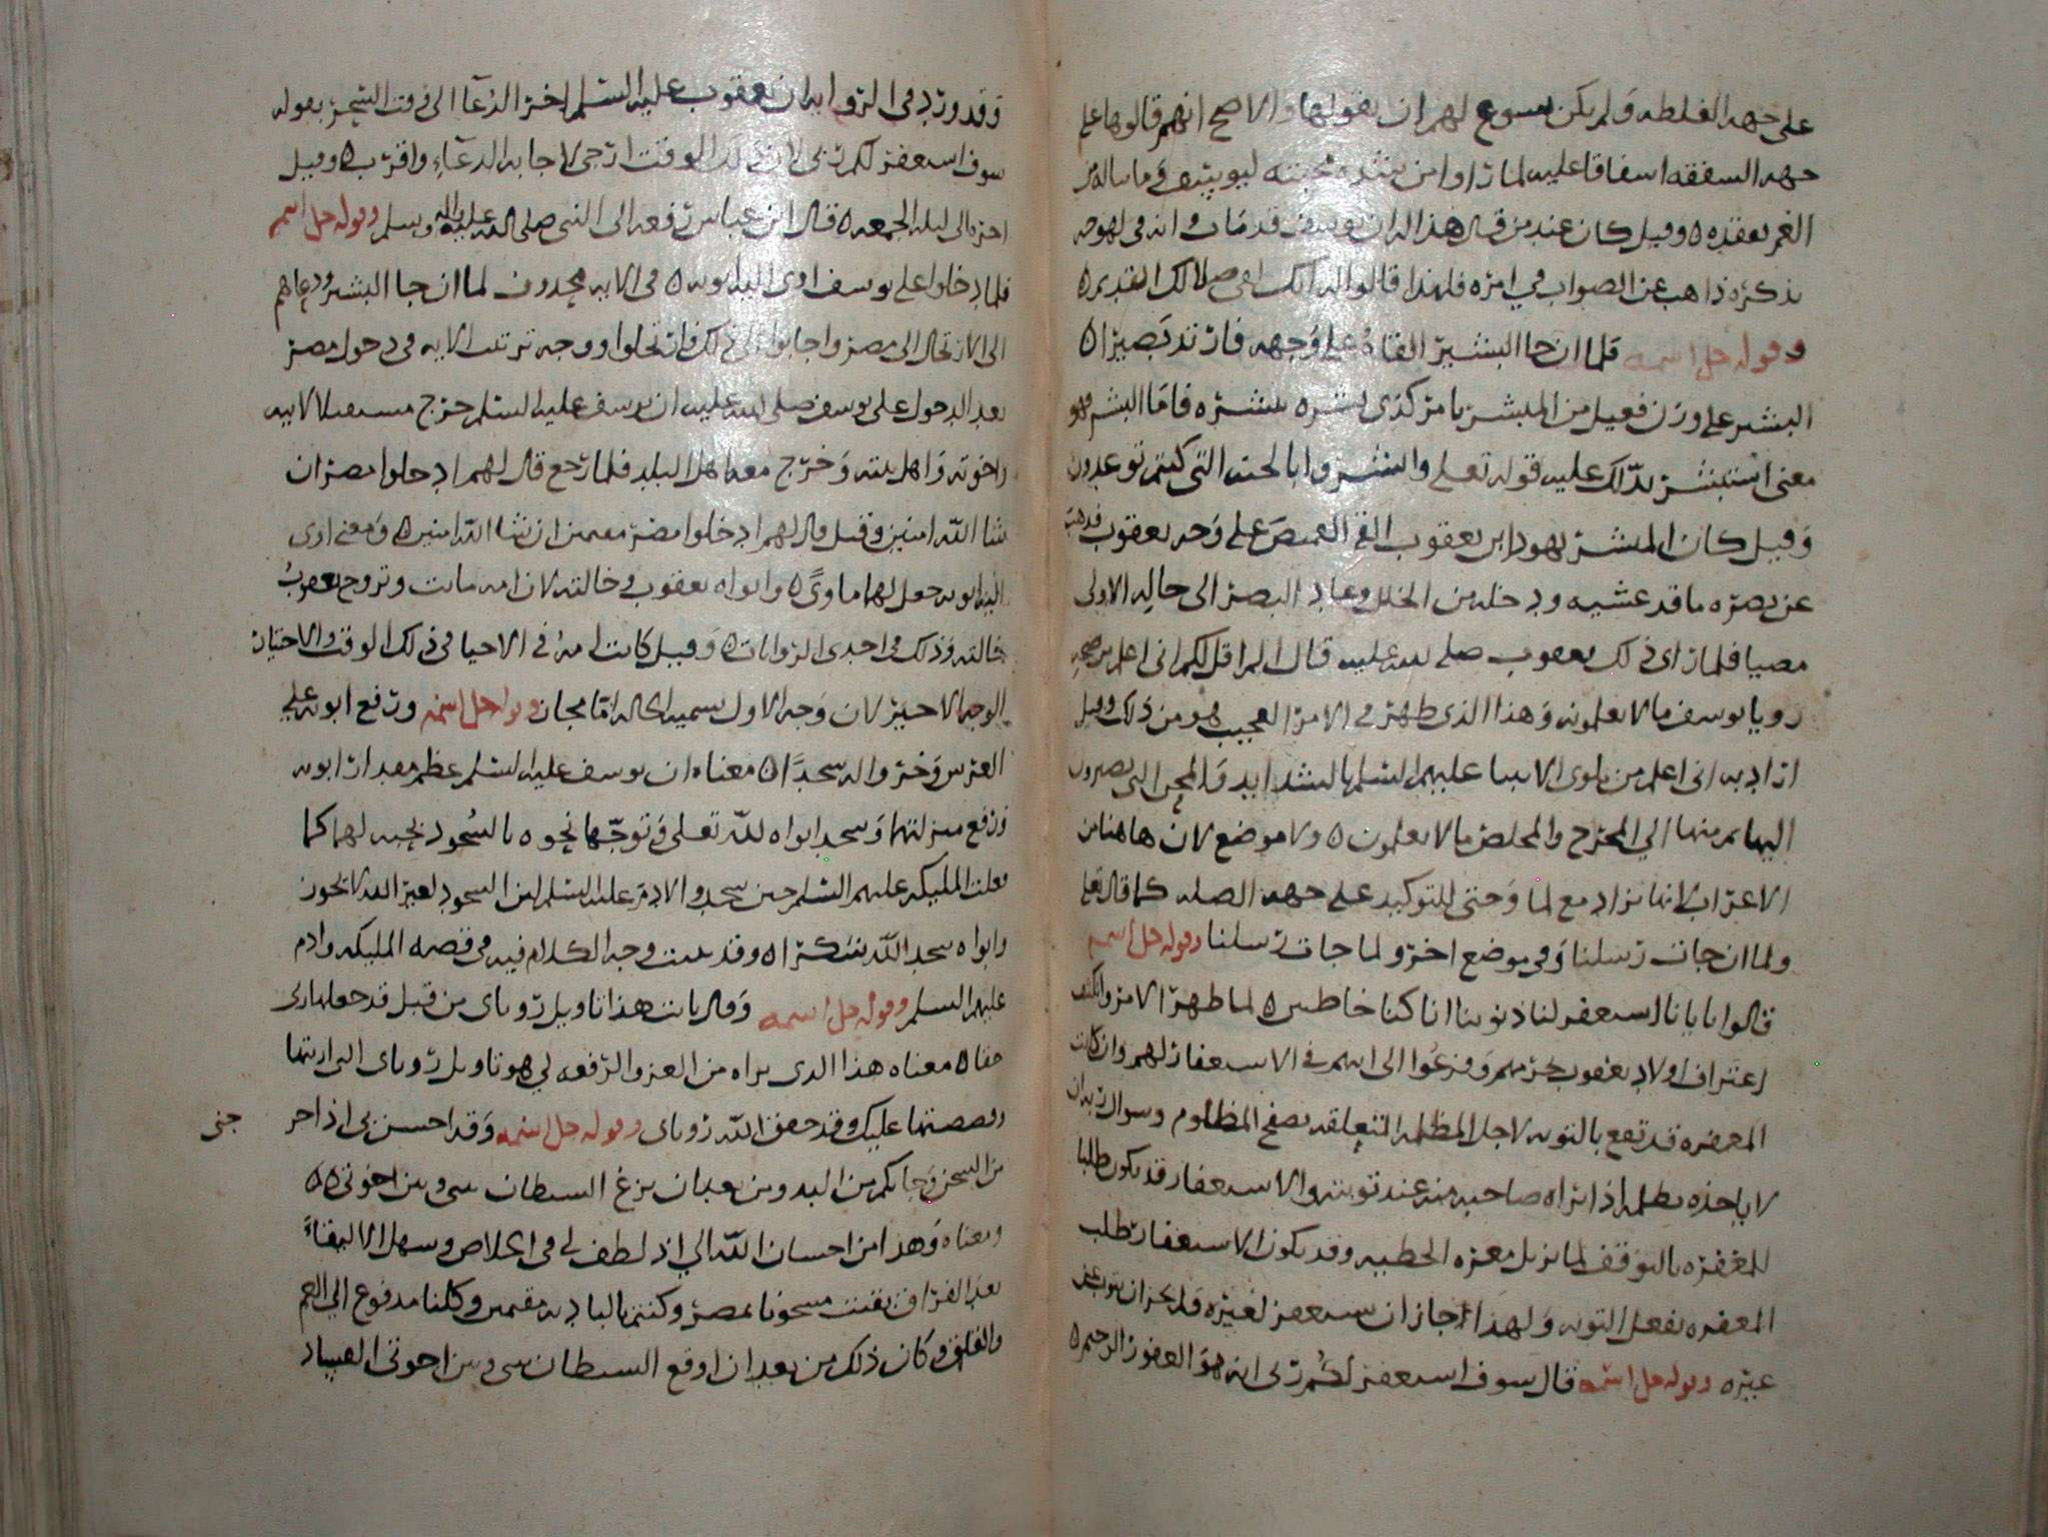 على جهه الغلطه ولم يكن يسوع لهم ان يقولوها والاصح انهم قالوها على
جهه الشفقه اشفاقا عليه لما راوا من شده محبته ليوسف وما ناله من
الغم بفقده ٥ وقيل كان عند من قال هذا له ان يوسف قد مات وانه في لهوجه
بذكره ذاهب عن الصواب في امره فلهذا قالوا له انك لفي ضلالك القديم ٥
وقوله جل اسمه فلما ان جا البشير القاه على وجهه فارتد بصيرا ٥
البشير على وزن فعيل من المبشر بامر كذى بشره يبشره فاما البشر فهو
معنى استبشر يدلك عليه قوله تعلى وابشروا بالجنه التي كنتم توعدون
وقيل كان المبشر يهودا بن يعقوب القى القميص على وجه يعقوب فذهب
عن بصره ما قد غشيه ودخله من الخلل وعاد البصر الى حاله الاولى
مضيا فلما راى ذلك يعقوب صلى الله عليه قال الم اقل لكم اني اعلم من صحه
رويا يوسف ما لا تعلمونه وهذا الذى ظهر في الامر العجيب هو من ذلك وقيل
اراد به انى اعلم من بلوى الانبيا عليهم السلم بالشدايد والمحن التي يصيرون
اليها ثم منها الى المخرج والمخلص ما لا تعلمون ٥ ولا موضع لان هاهنا من
الاعراب لانها تزاد مع لما وحتى للتوكيد على جهه الصله كما قال تعلى
ولما ان جات رسلنا وفي موضع اخر ولما جات رسلنا وقوله جل اسمه
قالوا يا ابانا استغفر لنا ذنوبنا انا كنا خاطين ٥ لما ظهر الامر وانكشف
اعتراف اولاد يعقوب بجرمهم وفزعوا الى ابيهم في الاستغفار لهم وان كانت
المغفره قد تقع بالتوبه لاجل المظلمه المتعلقه بصفح المظلوم وسوال ربه ان
لا ياخذه بظلمه اذا براه صاحبه منه عند توبته والاستغفار قد يكون طلبا
للمغفره بالتوقف لما يزيل معره الخطيه وقد يكون الاستغفار طلب
المغفره بفعل التوبه ولهذا جاز ان يستغفر لغيره ولم يجز ان يتوب عن
غيره وقوله جل اسمه قال سوف استغفر لكم ربي انه هو الغفور الرحيم ٥
وقد ورد في الروايه ان يعقوب عليه السلم اخر الدعا الى وقت السحر بقوله
سوف استغفر لكم ربى لان ذلك الوقت ارجى لاجابه الدعاء واقرب ٥ وقيل
اخره الى ليله الجمعه ٥ قال ابن عباس رفعه الى النبي صلى الله عليه واله وسلم وقوله جل اسمه
فلما دخلوا على يوسف اوى اليه ابويه ٥ في الايه محذوف لما ان جا البشير ودعاهم
الى الارتحال الى مصر واجابوا الى ذلك فارتحلوا ووجه ترتيب الايه في دخول مصر
بعد الدخول على يوسف صلى الله عليه ان يوسف عليه السلم خرج مستقبلا لابيه
واخوته واهل بيته وخرج معه اهل البلد فلما رجع قال لهم ادخلوا مصر ان
شا الله امنين وقيل قال لهم ادخلوا مصر مقيمين ان شا الله امنين ٥ ومعنى اوى
اليه ابويه جعل لهما ماوى ٥ وابواه يعقوب وخالته لان امه ماتت وتزوج يعقوب
خالته وذلك في احدى الروايات ٥ وقيل كانت امه في الاحيا في ذلك الوقت والاختيار
الوجه الاخير لان وجه الاول تسميه الخاله امًا مجاز وقوله جل اسمه ورفع ابويه على
العرش وخروا له سجدا ٥ معناه ان يوسف عليه السلم عظم مقدار ابويه
ورفع منزلتهما وسجد ابواه لله تعلى وتوجها نحوه بالسجود تحيه لهما كما
فعلت المليكه عليهم السلم حين سجدوا لادم عليه السلم لان السجود لغير الله لا يجوز
وابواه سجد الله شكرا ٥ وقد بينت وجه الكلام فيه في قصه المليكه وادم
عليهم السلم وقوله جل اسمه وقال يابت هذا تاويل روياى من قبل قد جعلها ربى
حقا ٥ معناه هذا الدى تراه من العز والرفعه لي هو تاويل روياى التي اريتها
وقصصتها عليك وقد حقق الله روياى وقوله جل اسمه وقد احسن بى اذ اخر
جنى
من السجن وجا بكم من البدو من بعد ان نزغ الشيطان بينى وبين اخوتى ٥٥
ومعناه وهذا من احسان الله الي اذ لطف لي في الخلاص وسهل الالتقاء
بعد الفراق بقيت مسجونا بمصر وكنتم بالباديه مقيمين وكلنا مدفوع الى الغم
والقلق وكان ذلك من بعد ان اوقع الشيطان بينى وبين اخوتى الفساد